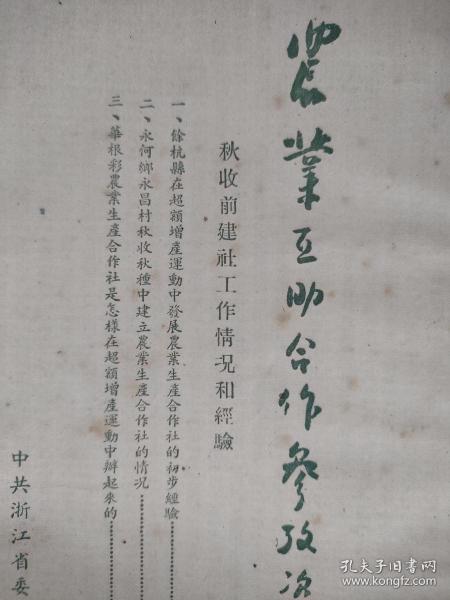 農業互助合作參攷資
秋收前建社工作情况和經驗
一、餘杭縣在超額增產運動中發展農業生產合作社的初步經驗…………
二、永何鄉永昌村秋收秋種中建立農業生產合作社的情况…………
三、華根彩農業生產合作社是怎樣在超額增產運動中辦起來的…………
中共浙江省委
孔夫子旧书网
book.kongfz.com